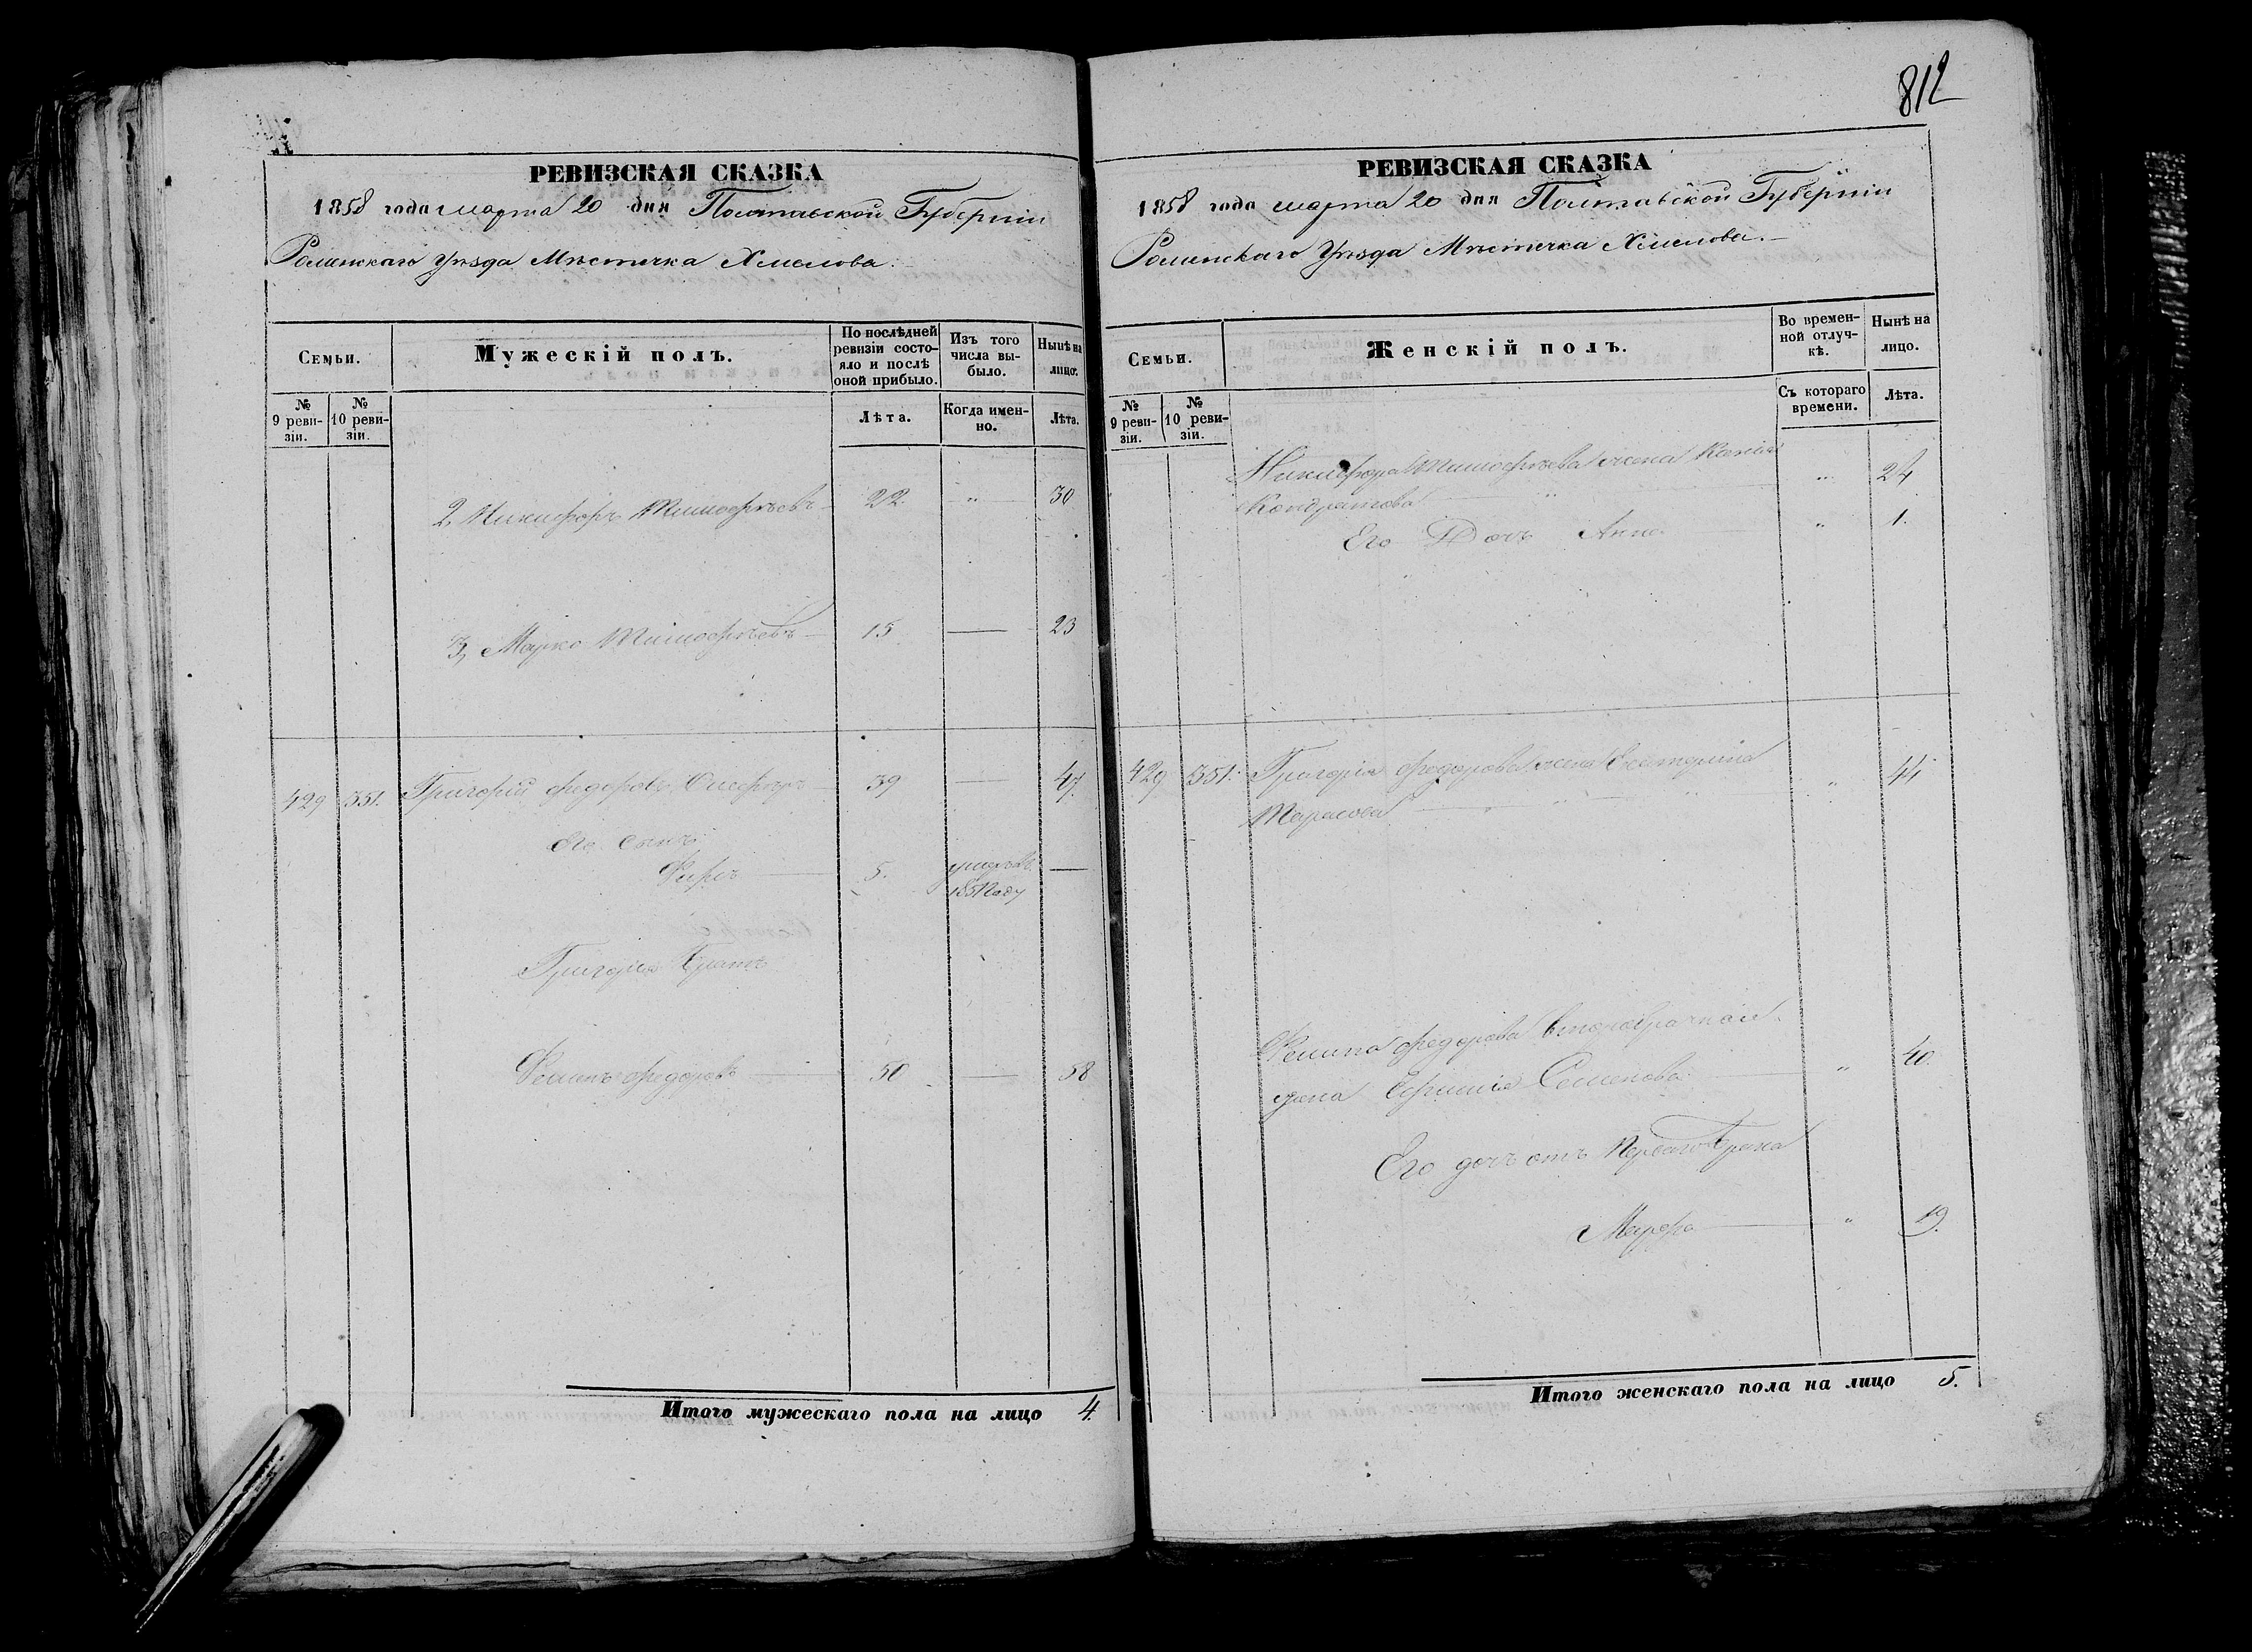 812
РЕВИЗСКАЯ СКАЗКА
1858 года марта 20 дня Полтавской Губерніи
Роменскаго Уѣзда Мѣстечка Хмелова.
Семьи.
Мужескій полъ.
По послѣдней ревизіи состояло и послѣ оной прибыло.
Изъ того числа выбыло.
Нынѣ на лицо.
№ 9 ревизіи.
№ 10 ревизіи.
Лѣта.
Когда именно.
Лѣта.
2, Никифоръ Тимофѣевъ 22. " 30
3, Марко Тимофѣевъ 15 — 23
429 351. Григорій Федоровъ 39 — 47.
Его сынъ
Фирсъ 5. —
Григорія братъ
Федоровъ 50 — 58
Итого мужескаго пола на лицо 4.
РЕВИЗСКАЯ СКАЗКА
1858 года марта 20 дня Полтавской Губерніи
Роменскаго Уѣзда Мѣстечка Хмелова.
Семьи.
Женскій полъ.
Во временной отлучкѣ.
Нынѣ на лицо.
№ 9 ревизіи.
№ 10 ревизіи.
Съ котораго времени.
Лѣта.
Никифора Тимофѣева жена Ксенія " 24
Кондратова
Его Дочь Анна " 1.
429 351. Григорія Федорова жена " 44
Тарасова
Федорова второбрачная
жена Семенова " 40.
Его дочь отъ перваго брака
Марфа " 19.
Итого женскаго пола на лицо 5.